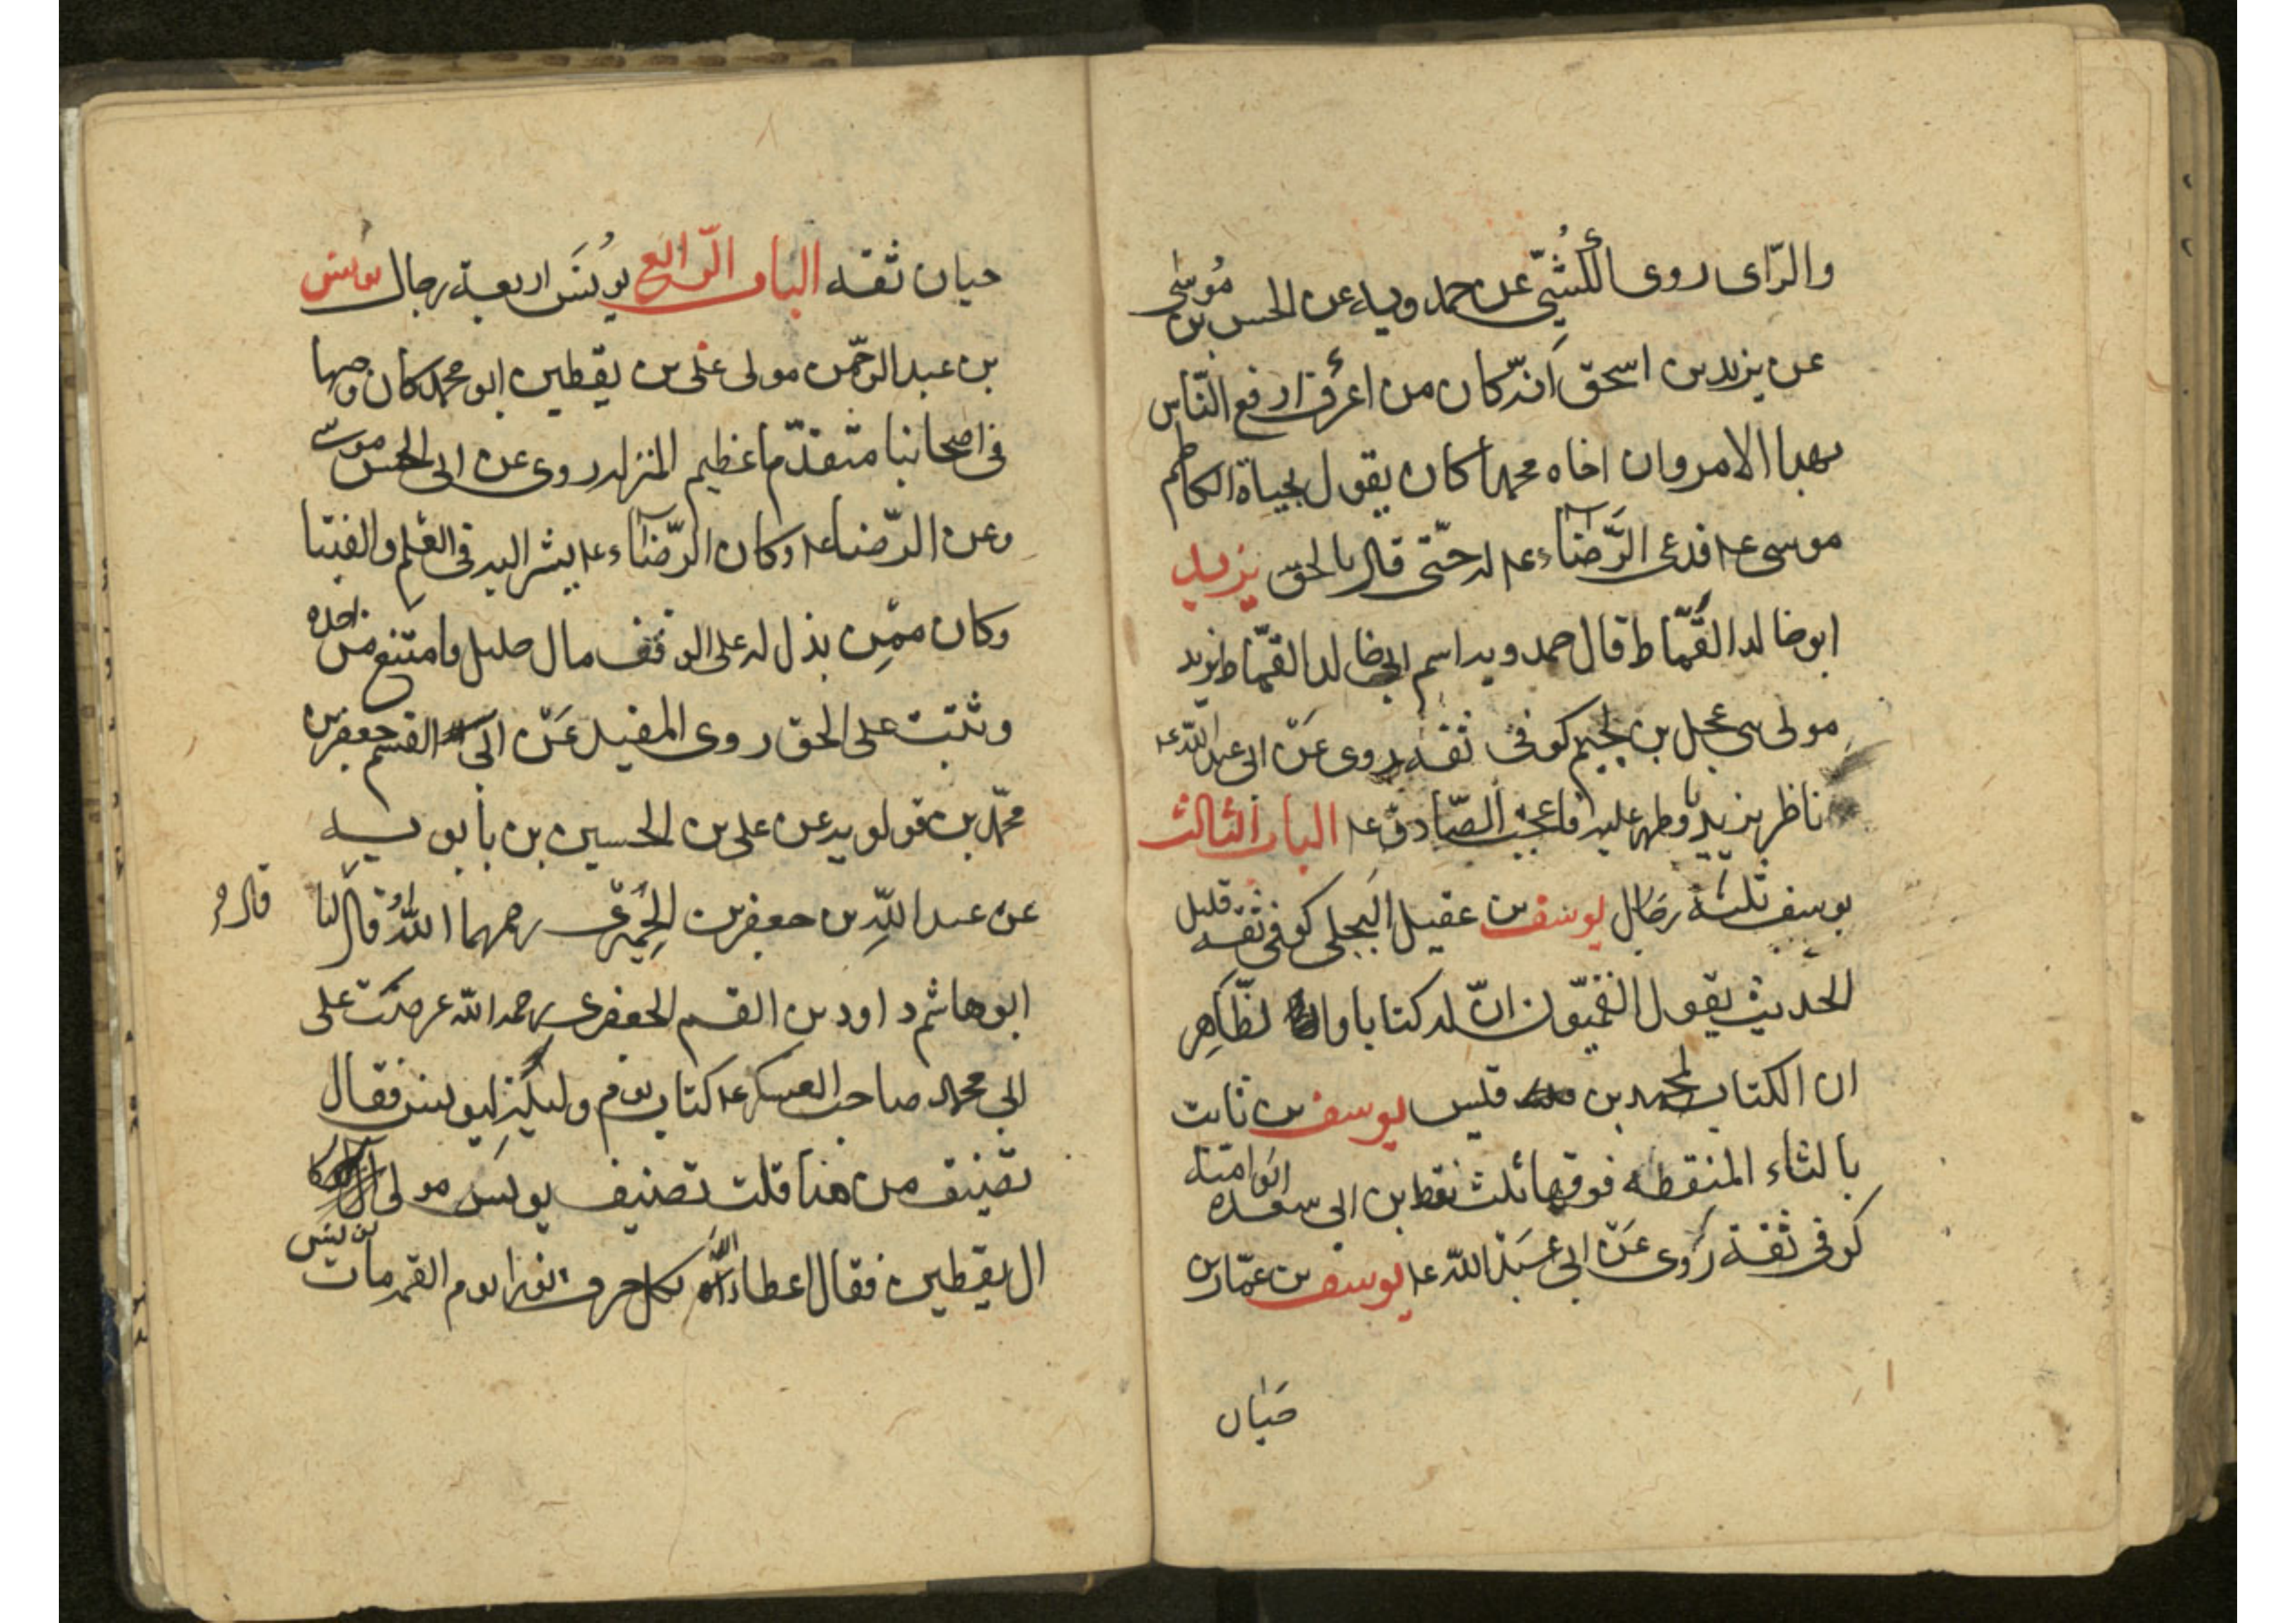 والرّاى روى الكُشّىّ عن حمدويه عن الحسن بن موسى
عن يزيد بن اسحق انه كان من ارفع النّاس
بهذا الامر وان اخاه محمدا كان يقول بحياة الكاظم
موسى عه فدعى الرّضاء عه له حتّى قال بالحق يزيد
ابوخالد القمّاط قال حمدويه اسم ابى خالد القمّاط يزيد
مولى بنى عجل بن لجيم كوفى ثقه روى عن ابى عبد الله عه
ناظر يزيديا وظهر عليه فاعجب الصّادق عه الباب الثالث
يوسف ثلثة رجال يوسف بن عقيل البجلى كوفى ثقه قليل
الحديث يقول القميّون انّ له كتابا و الظّاهر
ان الكتاب لمحمد بن قيس يوسف بن ثابت
بالثاء المنقطه فوقها ثلث نقط بن ابى سعده ابو امية
كوفى ثقة روى عن ابى عبد الله عه يوسف بن عمّار بن
حيان
حيان ثقه الباب الرّابع يونس اربعة رجال يونس
بن عبد الرحمن مولى على بن يقطين ابو محمد كان وجها
فى اصحابنا متقدّما عظيم المنزله روى عن ابى الحسن موسى
وعن الرّضا عه وكان الرّضاء عه يشير اليه فى العلم والفتيا
وكان ممّن بذل له على الوقف مال جليل وامتنع من اخذه
وثبت على الحق روى المفيد عن ابى القسم جعفر بن
محمّد بن قولويه عن على بن الحسين بن بابويه
عن عبد اللّه بن جعفر الحِميَرى رحمهما اللّه قال لنا
قال
ابو هاشم داود بن القسم الجعفرى رحمه الله عرضت على
ابى محمد صاحب العسكر عه كتاب يوم وليلة ليونس فقال
تصنيف من هذا قلت تصنيف يونس مولى
ال يقطين فقال اعطاه الله بكل حرف نورا يوم القيمه مات